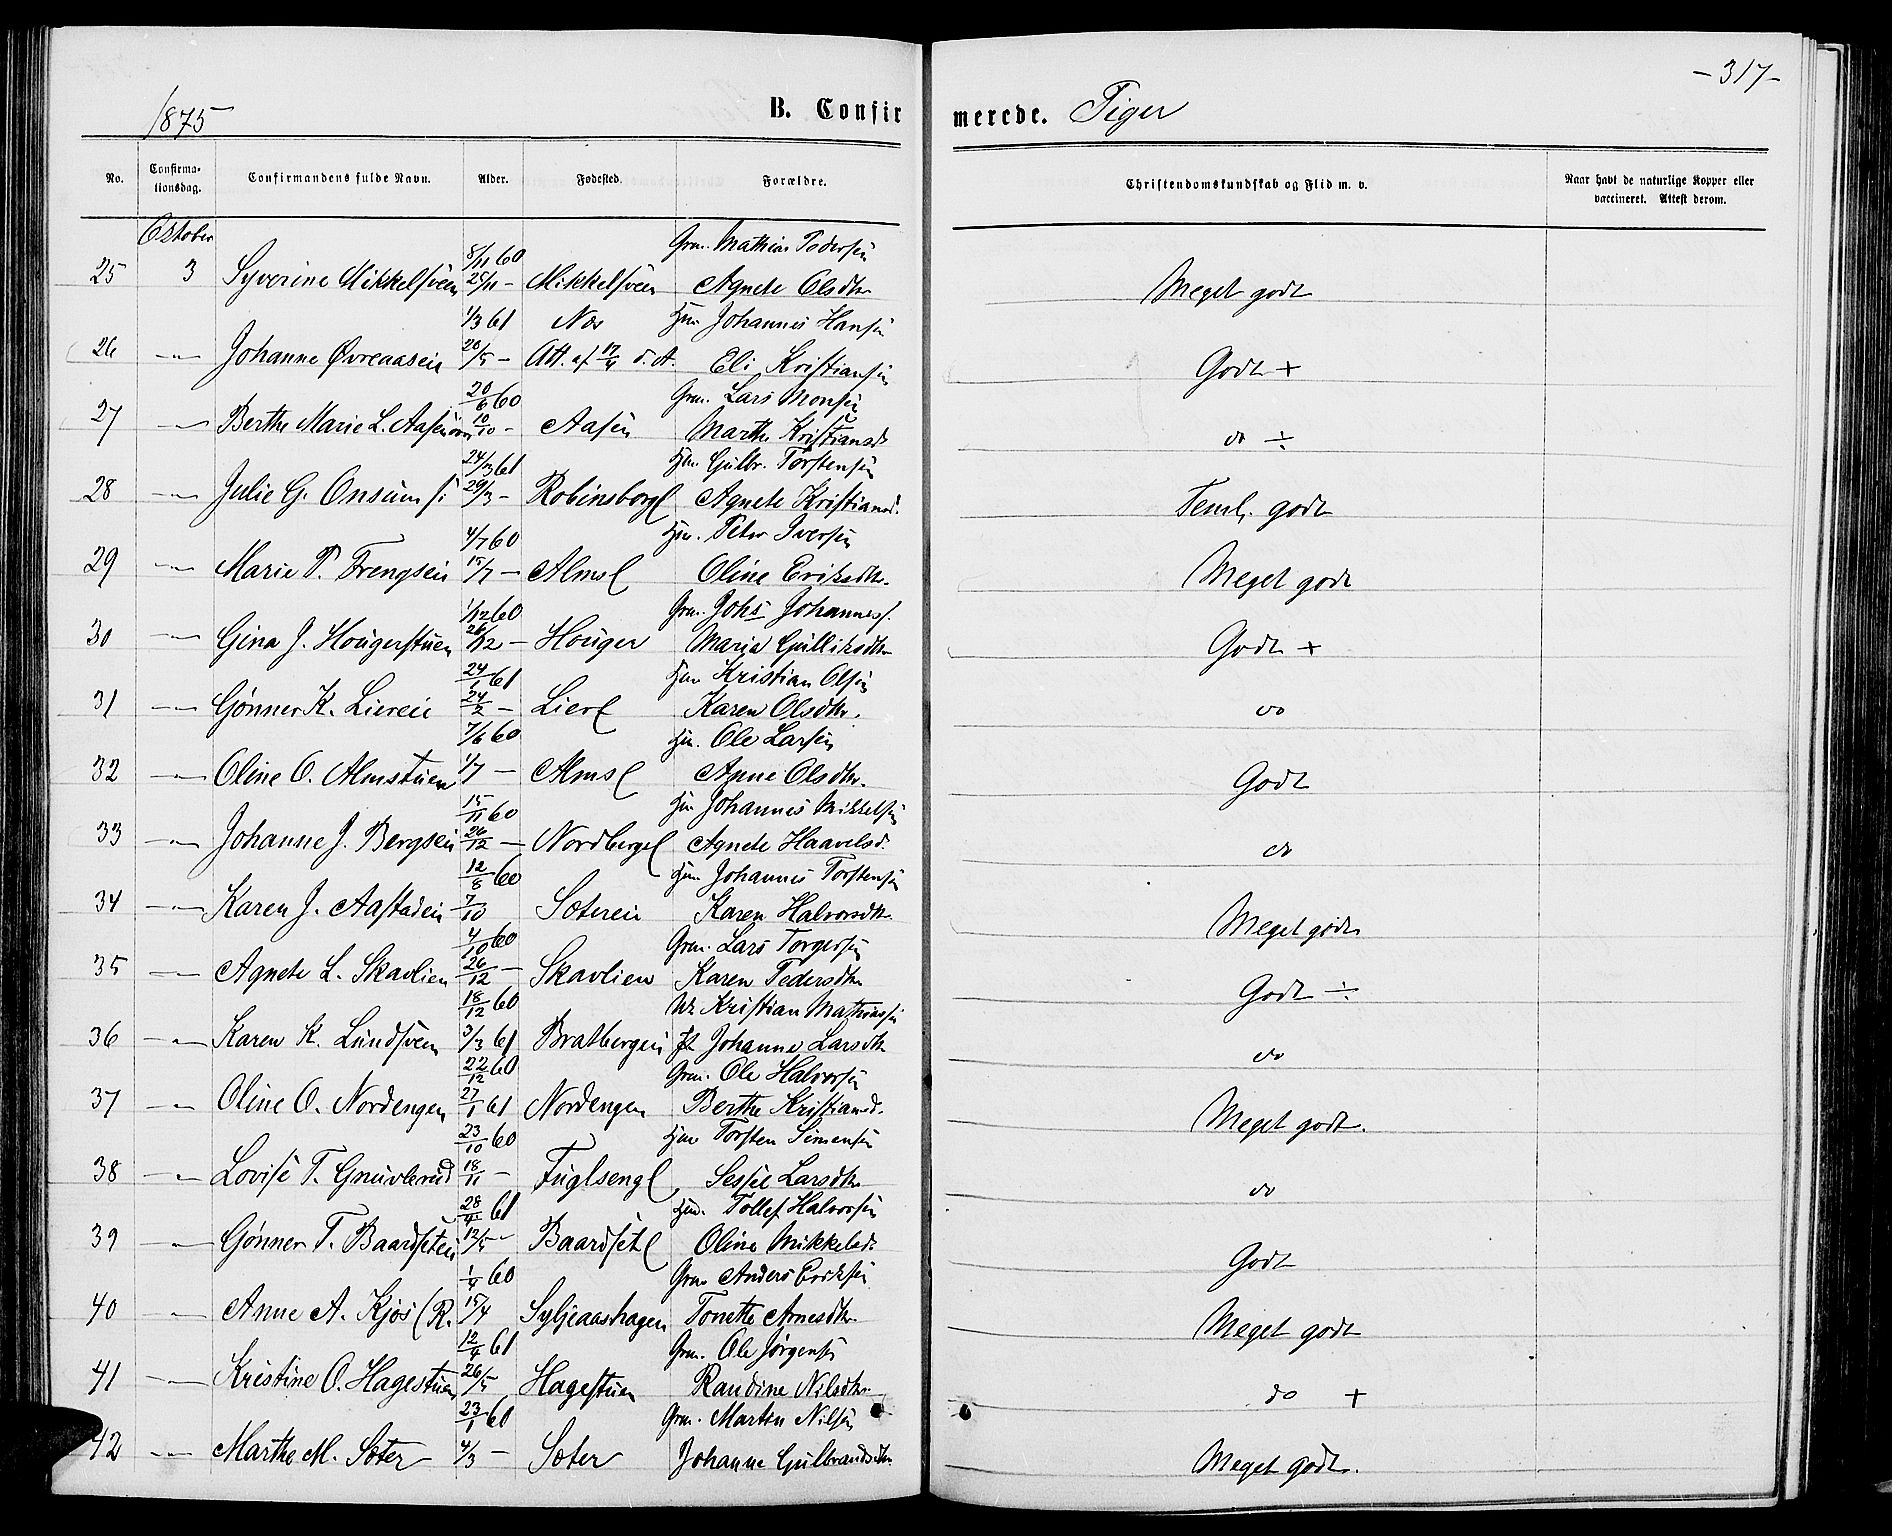 -317-
1875 B. Confirmerede. Piger
No. Confirmationsdag. Confirmandens fulde Navn. Alder. Fødested. Forældre. Christendomskundskab og Flid m. v. Naar havt de naturlige Kopper eller vaccineret. Attest derom.
October
8/11 60 Grm. Mathias Pedersen
25 3 Syverine Mikkelsveen 25/11 - Mikkelsveen Agnete Olsdtr Meget godt
1/3 61 Næs Hsm Johannes Hansen
26 -"- Johanne Øvreaasen 20/5 - Att. af 17/4 d. A. Eli Kristiansen Godt +
20/6 60 Grm. Lars Monsen
27 -"- Berthe Marie L. Aasen 10/10 - Aasen Marthe Kristiansd. do ÷
24/3 61 Hsm. Gulbr. Torstensen
28 -"- Julie G. Onsum 29/3 - Robinsborg Agnete Kristiansd. Teml. godt
4/7 60 Hsm. Peter Iversen
29 -"- Marie P. Frengsen 15/7 - Alms Oline Eriksdtr. Meget godt
1/12 60 Grm. Johs Johanness.
30 -"- Gina J. Hougerstuen 26/12 - Houger Maria Gulliksdtr Godt +
24/1 61 Hsm Kristian Olsen
31 -"- Gønner K. Liereie 24/2 - Lier Karen Olsdtr. do
7/6 60 Hsm. Ole Larsen
32 -"- Oline O. Almstuen 1/7 - Alms Anne Olsdtr. Godt
15/11 60 Hsm Johannes Mikkelsen
33 -"- Johanne J. Bergseie 26/12 - Nordberg Agnete Haavelsd. do
12/8 60 Hsm Johannes Torstensen
34 -"- Karen J. Aastadeie 7/10 Sætereie Karen Halvorsdtr. Meget godt
4/10 60 Grm. Lars Torgersen
35 -"- Agnete L. Skavlien 26/12 - Skavlien Karen Pedersdtr Godt ÷
18/12 60 Kristian Mathiassen
36 -"- Karen K. Lundsveen 3/3 61 Bratbergeie Johanne Larsdtr do
22/12 60 Grm. Ole Halvorsen
37 -"- Oline O. Nordengen 27/1 61 Nordengen Berthe Kristiansd. Meget godt.
23/10 60 Hsm Torsten Simensen
38 -"- Lovise T. Gnuvlerud 18/11 - Fuglseng Sessel Larsdtr do
28/4 61 Hsm. Tollef Halvorsen
39 -"- Gønner T. Baardseteie 12/5 - Baardset Oline Mikkelsd. Godt
1/4 60 Grm Anders Eriksen
40 -"- Anne A. Kjos (R. 15/4 Syljeaashagen Tonette Arnesdtr. Meget godt
12/4 61 Grm. Ole Jørgensen
41 -"- Kristine O. Hagestuen 26/5 Hagestuen Randine Nilsdtr. do +
23/1 60 Grm. Martin Nilsen
42 -"- Marthe M. Sæter 4/3 - Sæter Johanne Gulbrandsdtr Meget godt.